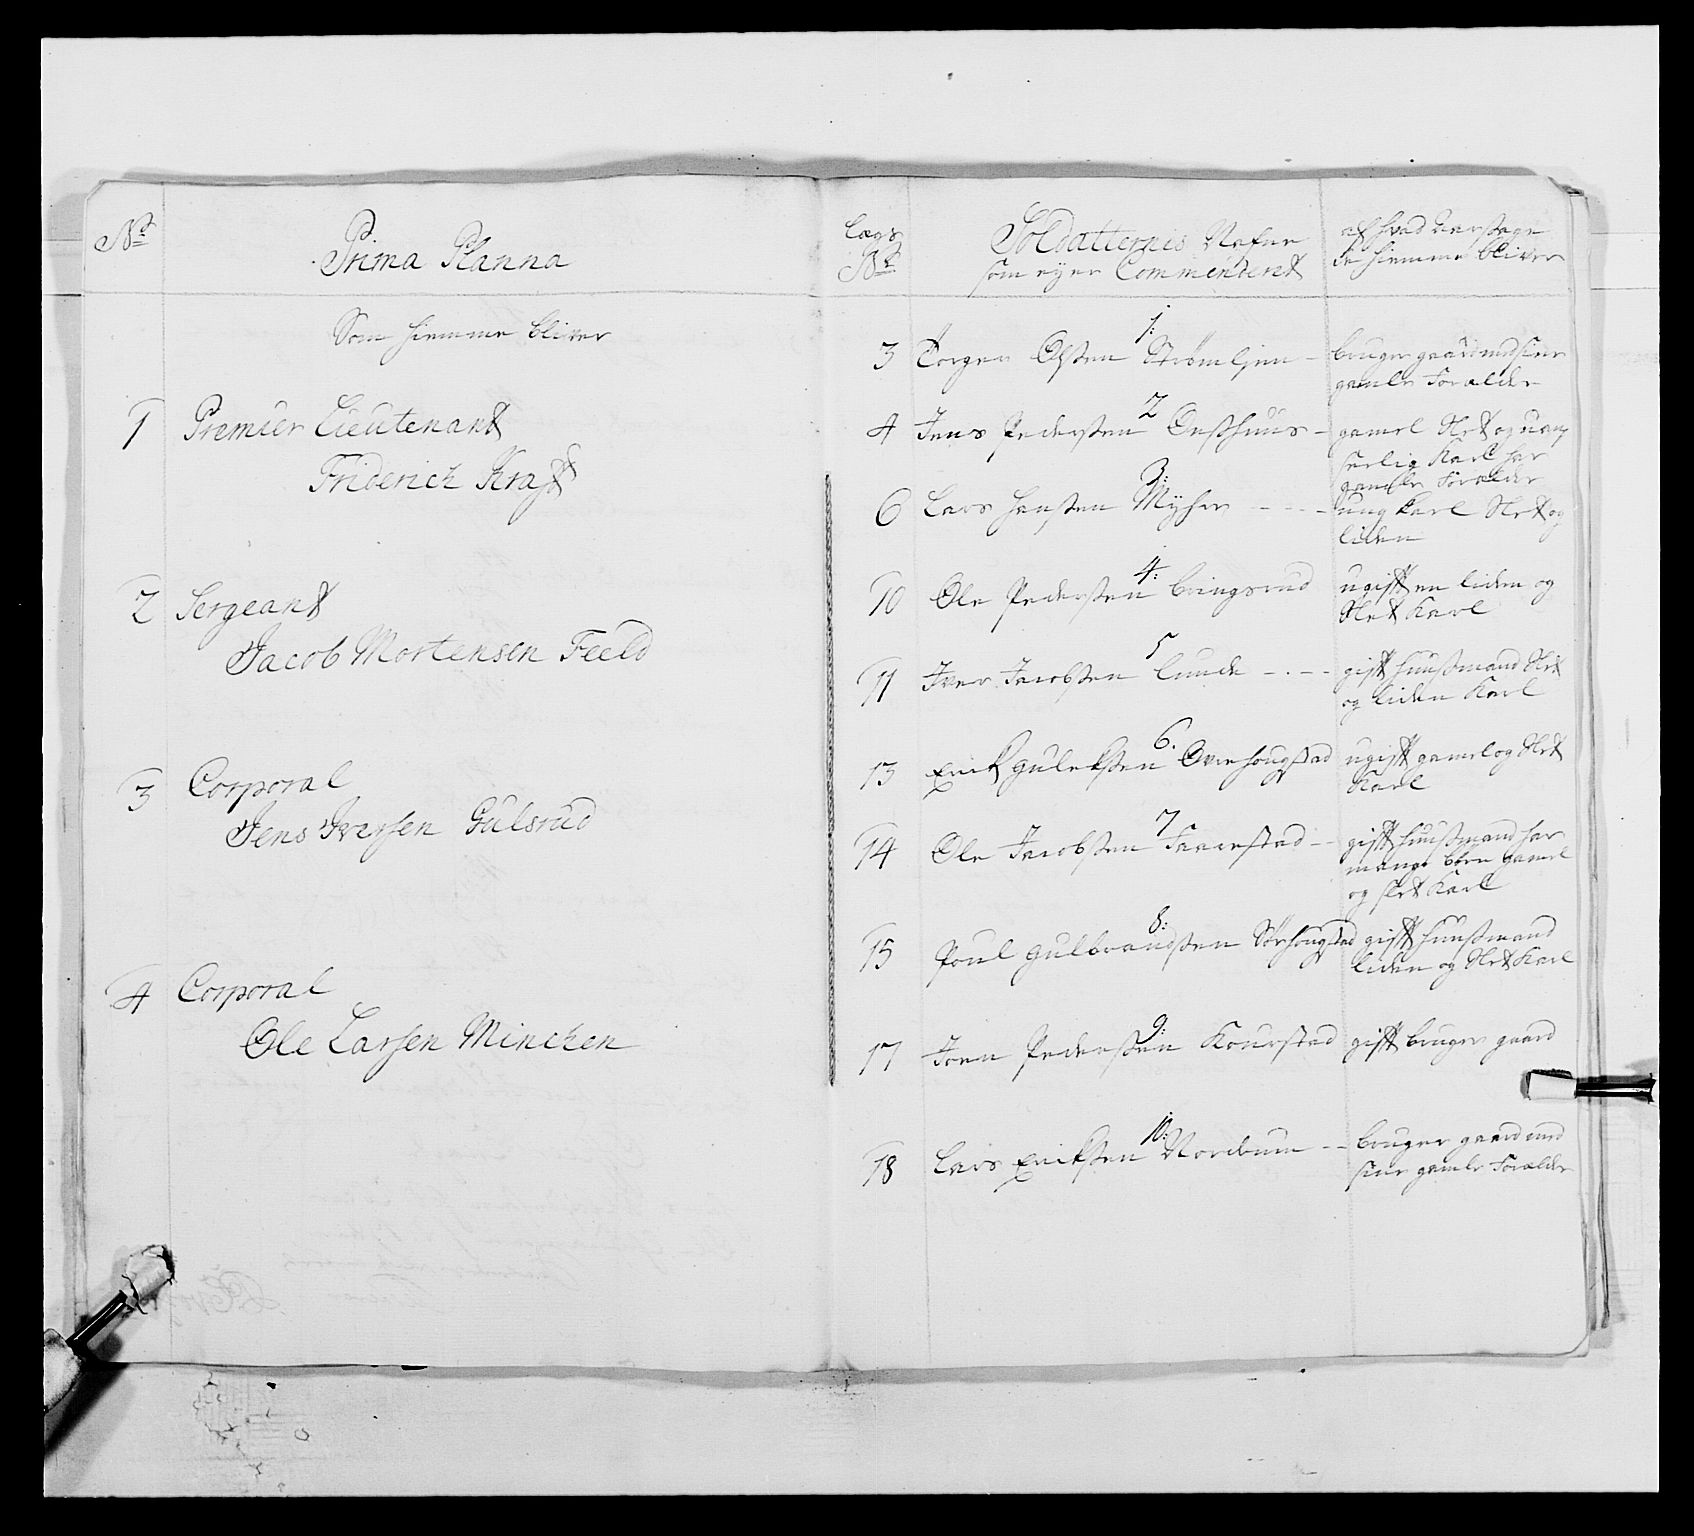 No
Prima Planna
Som hiemme bliver
1 Premier Lieutenant
Friderich Kraft
2 Sergeant
Jacob Mortensen Feeld
3 Corporal
Jens Iversen Gulsrud
4 Corporal
Ole Larsen Minchen
Lægs No
Soldatternis Nafne
som ej er Commenderet
af hvad aarsage
de hiemme bliver
1:
3 Torger Olsen Strømlien – bruger gaard med sine
gamle Forældre
2
4 Jens Pedersen Onsthuus – gamel Slet og
Karl har
gamle Forældre
3:
6 Lars Hansen Myhre – – – ung Karl Slet og
liden
4:
10 Ole Pedersen Bringsrud ugift en liden og
Slet Karl
5
11 Iver Jacobsen Lunde – . – – gift huusmand Slet
og liden Karl
6.
13 Erik Guleksen Ovrehougstad ugift gamel og Slet
Karl
7
14 Ole Jacobsen Taarestad – – gift huusmand har
mange børn gamel
og slet Karl
8:
15 Poul Gulbrandsen Sørehougstad gift huusmand
liden og Slet Karl
9:
17 Joen Pedersen Kourstad gift bruger gaard
10:
18 Lars Eriksen Nordbum – – bruger gaard med
sine gamle Forældre